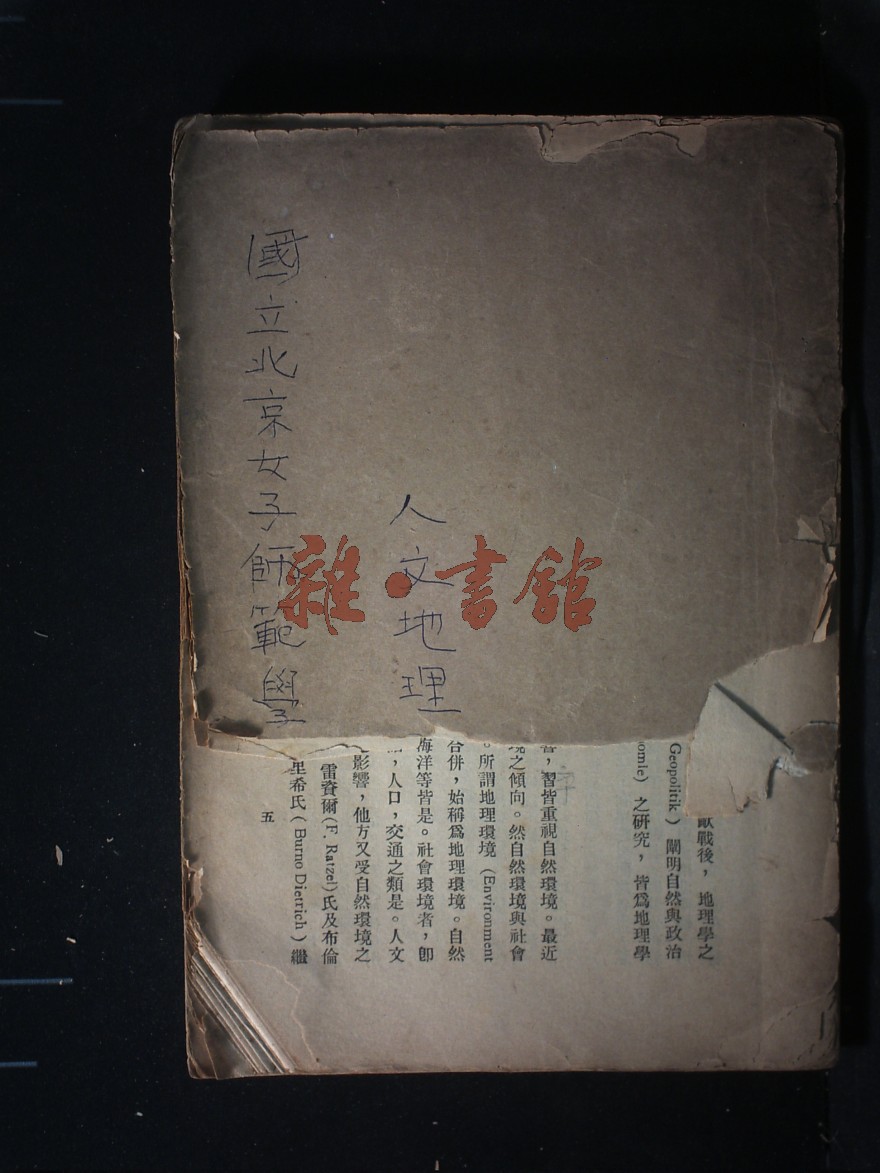 人文地理
國立北京女子師範學
雜·書館
歐戰後，地理學之
Geopolitik）闡明自然與政治
omie）之研究，皆爲地理學
序
響，習皆重視自然環境。最近
境之傾向。然自然環境與社會
。所謂地理環境（Environment
合併，始稱爲地理環境。自然
海洋等皆是。社會環境者，卽
，人口，交通之類是。人文
影響，他方又受自然環境之
雷賚爾(F. Ratzel)氏及布倫
里希氏（Burno Dietrich）繼
五